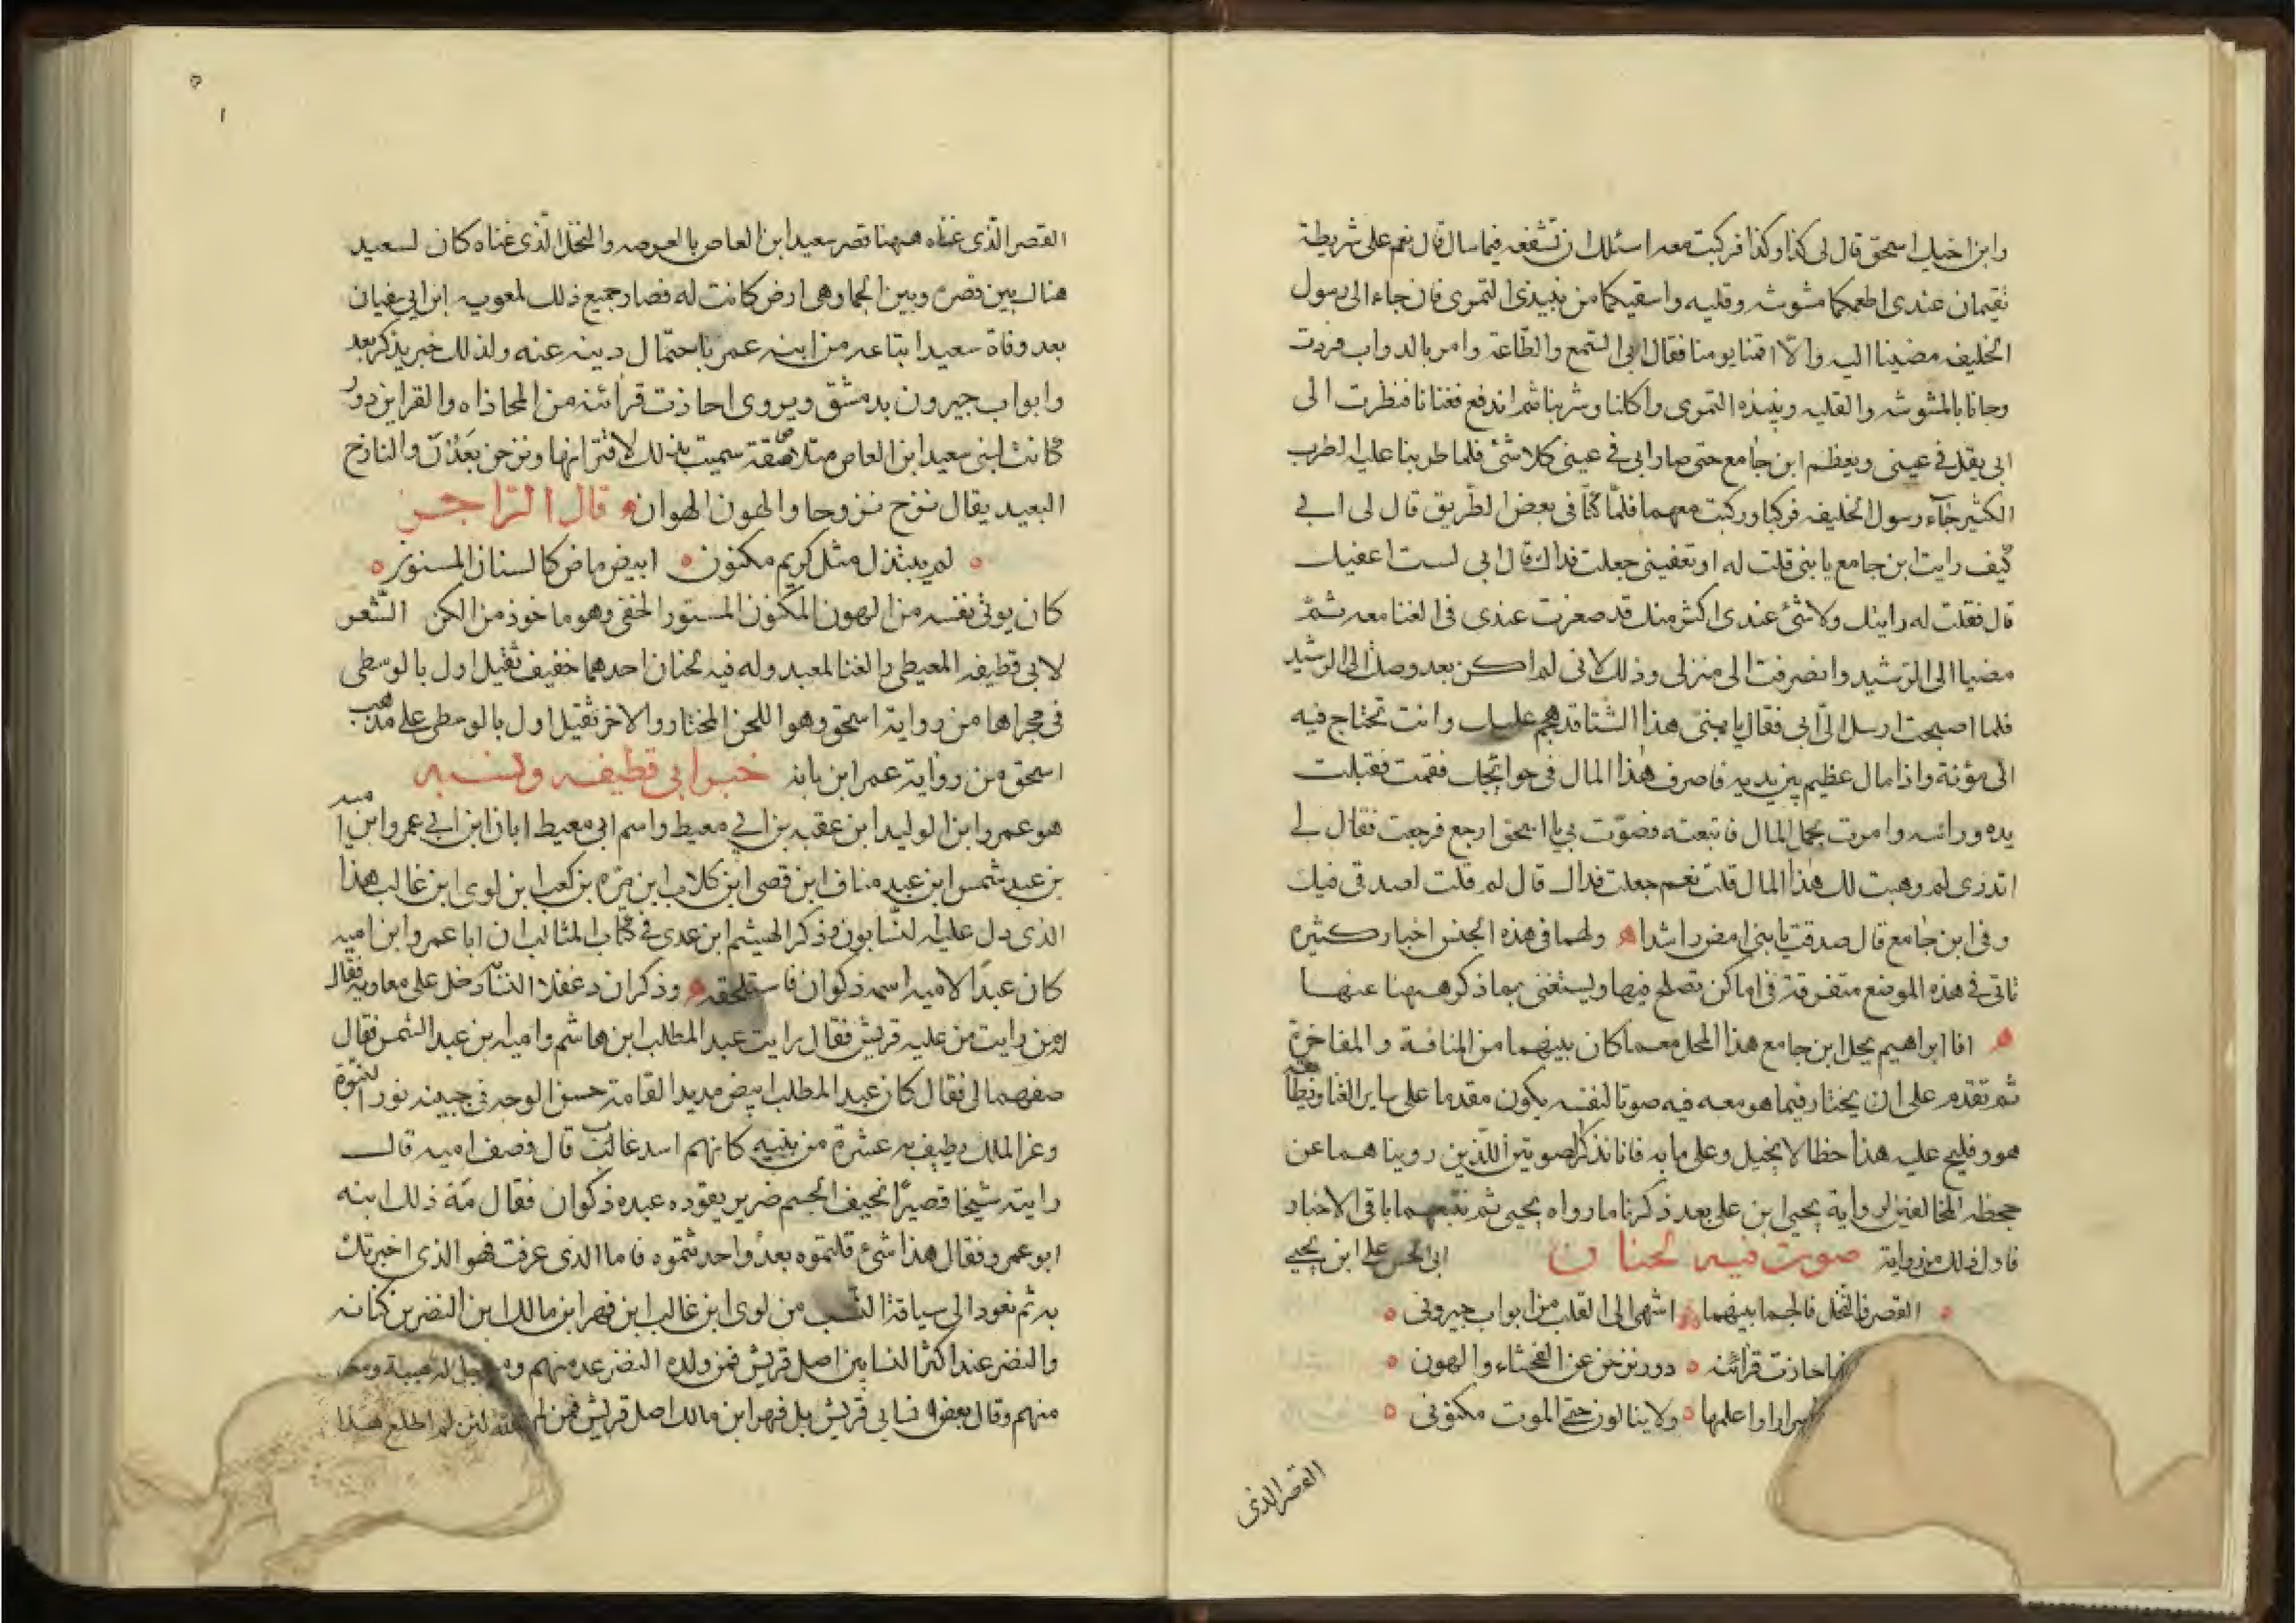 وابن اخيك اسحق قال لى كذا وكذا فركبت معه اسئلك ان تشفعه فيما سال قال نعم على شريطة
تقيمان عندى اطعمكما مشوشه وقليه واسقيكما من نبيذى التمرى فان جاء الى رسول
الخليفه مضينا اليه والا اقمنا يومنا فقال ابى السمع والطاعة وامر بالدواب فردت
وجانا بالمشوشه والقليه ونبيذه التمرى واكلنا وشربنا ثم اندفع فغنانا فنظرت الى
ابى يقل فى عينى ويعظم ابن جامع حتى صار ابى فى عينى كلا شئ فلما طربنا عليه الطرب
الكثير جآء رسول الخليفه فركبا وركبت معهما فلما كنا فى بعض الطريق قال لى ابى
كيف رايت ابن جامع يا بنى قلت له او تعفينى جعلت فداك قال ابى لست اعفيك
قال فقلت له رايتك ولا شئ عندى اكثر منك قد صغرت عندى فى الغنا معه ثم
مضيا الى الرشيد وانصرفت الى منزلى وذلك لانى لم اكن بعد وصلت الى الرشيد
فلما اصبحت ارسل الى ابى فقال يا بنى هذا الشتا قد هجم عليك وانت تحتاج فيه
الى مؤنة واذا مال عظيم بين يديه فاصرف هذا المال فى حوائجك فقمت فقبلت
يده وراسه وامرت بحمل المال فاتبعته فصوت بى يا اسحق ارجع فرجعت فقال لى
اتدرى لم وهبت لك هذا المال قلت نعم جعلت فداك قال لم قلت لصدقى فيك
وفى ابن جامع قال صدقت يا بنى امض راشدا ولهما فى هذه الجنس اخبار كثيره
تاتى فى هذه الموضع متفرقة فى اماكن تصلح فيها ويستغنى بما ذكر ههنا عنها
افا ابراهيم يحل ابن جامع هذا المحل مع ما كان بينهما من المنافسة والمفاخرة
ثم تقدم على ان يختار فيما هو معه فيه صوتا لنفسه يكون مقدما على ساير الغنا
هو وفليح عليه هذا خطا لا يخيل وعلى ما به فانا نذكر الصوتين اللذين رويناهما عن
جحظه المخالفين لرواية يحيى ابن على بعد ذكرنا ما رواه يحيى ثم نتبعهما باقى الاخبار
فاول ذلك من رواية صوت فيه لحنان ابى الحسن على ابن يحيى
القصر فالنخل فالجما بينهما اشهى الى القلب من ابواب جيرونى
ما حاذت قرائنه دور نزحن عن الفحشاء والهون
اسرارا واعلمها ولا ينالون حتى الموت مكنونى
القصر الذى
القصر الذى عناه ههنا قصر سعيد ابن العاص بالعرصه والنخل الذى عناه كان لسعيد
هناك بين قصره وبين الجما وهى ارض كانت له فصار جميع ذلك لمعويه ابن ابى سفيان
بعد وفاة سعيد ابتاعه من ابنه عمر باحتمال دينه عنه ولذلك خبر يذكر بعد
وابواب جيرون بدمشق ويروى احاذت قرائنه من المحاذاه والقراين دور
كانت لبنى سعيد ابن العاص متلاصقة سميت بذلك لاقترانها ونزحن بعدن والنازح
البعيد يقال نزح نزوحا والهون الهوان قال الراجز
لم يبتذل مثل كريم مكنون ابيض ماض كالسنان المسنون
كان يوقى نفسه من الهون المكنون المستور الخفى وهو ماخوذ من الكن الشعر
لابى قطيفه المعيطى والغنا لمعبد وله فيه لحنان احدهما خفيف ثقيل اول بالوسطى
فى مجراها من رواية اسحق وهو اللحن المختار والاخر ثقيل اول بالوسطى على مذهب
اسحق من رواية عمر ابن بانه خبر ابى قطيفه ونسبه
هو عمرو ابن الوليد ابن عقبه بن ابى معيط واسم ابى معيط ابان ابن ابى عمرو ابن اميه
بن عبد شمس ابن عبد مناف ابن قصى ابن كلاب ابن مره بن كعب ابن لوى ابن غالب هذا
الذى دل عليه النسابون وذكر الهيشم ابن عدى فى كتاب المثالب ان ابا عمرو ابن اميه
كان عبدا لاميه اسمه ذكوان فاستلحقه وذكر ان دغفلا النسابه دخل على معاويه فقال
له من رايت من عليه قريش فقال رايت عبد المطلب ابن هاشم واميه بن عبد الشمس فقال
صفهما لى فقال كان عبد المطلب ابيض مديد القامة حسن الوجه فى جبينه نور النبوة
وعز الملك يطيف به عشرة من بنيه كانهم اسد غالب قال فصف اميه قال
رايته شيخا قصيرا نحيف الجسم ضرير يقوده عبده ذكوان فقال مه ذلك ابنه
ابو عمرو فقال هذا شئ قلتموه بعد واحدثتموه فاما الذى عرفت فهو الذى اخبرتك
به ثم نعود الى سياقة النسب من لوى ابن غالب ابن فهر ابن مالك ابن النضر بن كنانه
والنضر عند اكثر النسابين اصل قريش فمن ولده النضر عد منهم ومن
منهم وقال بعض نسابى قريش بل فهر ابن مالك اصل قريش فمن لم